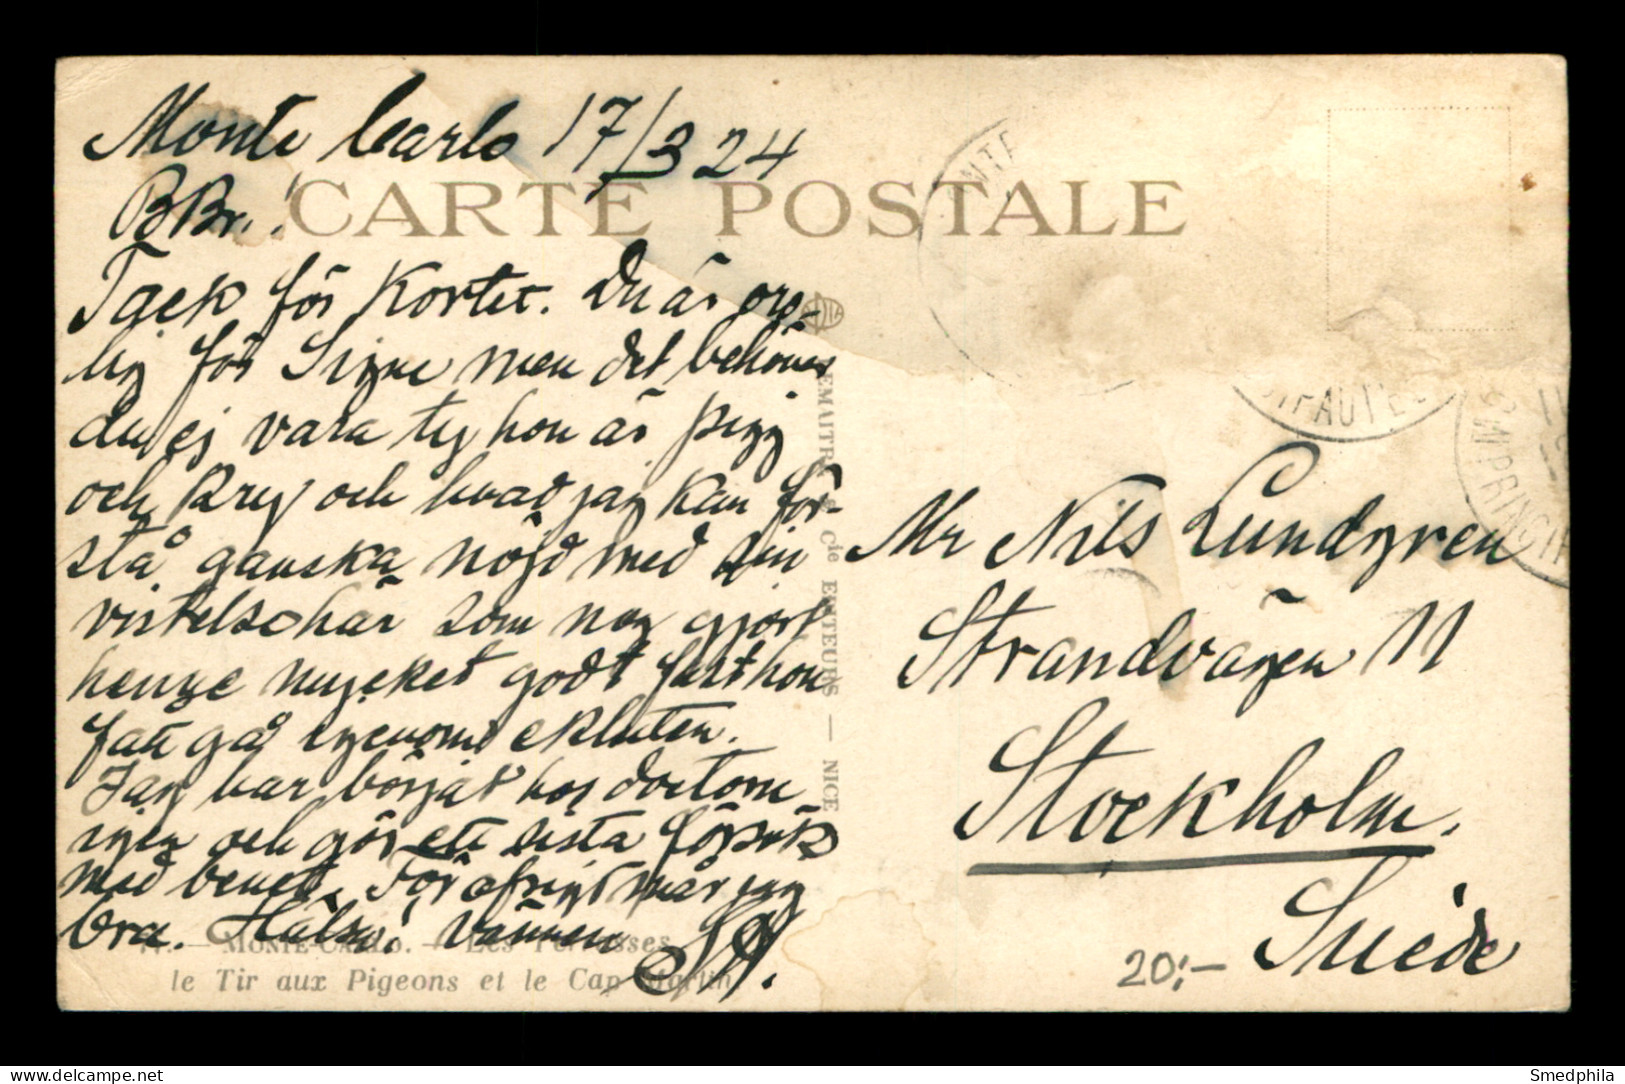 Monte Carlo 17/3 24
CARTE POSTALE
B Br.!
Tack för Kortet. Du är oro-
lig för Signe men det behöver
du ej vara ty hon är pigg
och kry och hvad jag kan för-
stå ganska nöjd med sin
vistelse här som nog gjort
henne mycket godt fast hon
fått gå igenom eklaten.
Jag har börjat hos doktorn
igen och gör ett sista försök
med benet. För öfrigt mår jag
bra. Hälsn! Vännen
MONTE-CARLO. — Les Terrasses
le Tir aux Pigeons et le Cap Martin
EMAITRE & Cie EDITEURS — NICE
Mr Nils Lundgren
Strandvägen 11
Stockholm.
Suède
20:-
PRINCIP
Smedphila